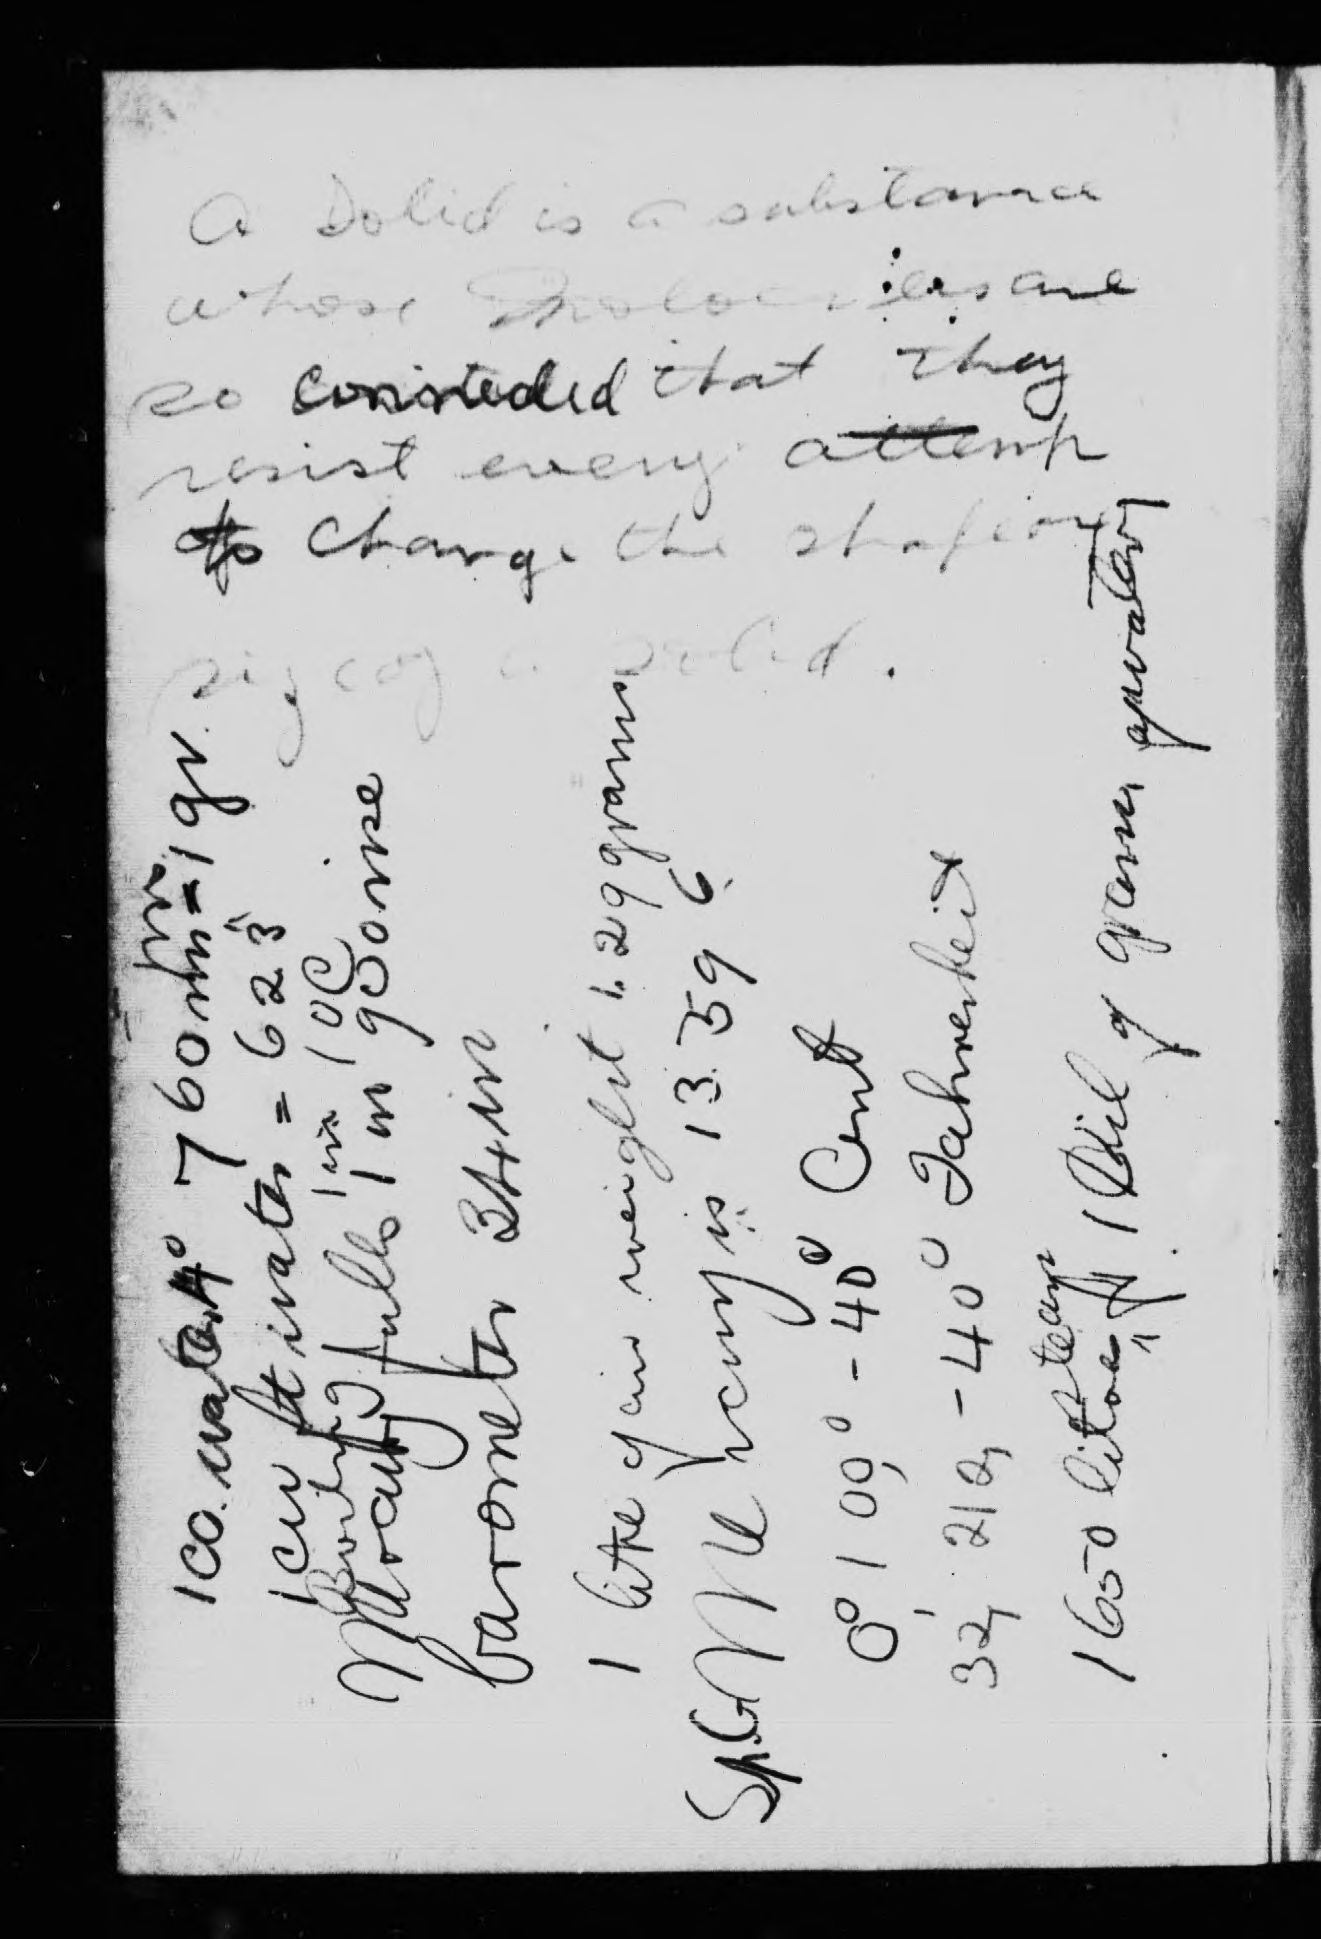 A Solid is a substance
whose Molecules are
so connected that they
resist every attemp
to change the shape or
size of a solid.
1 CC. water 4° 760 mm = 1 gr.
1 cu ft water = 62.3
Boiling 1 in 1°C
Mercury falls 1 in 900 rise
barometer 34 in
1 litre of air weight 1.29 grams
Sp. G Mercury is 13.596
0° 100° -40° Cent
32, 212, -40° Fahrenheit
1650 litres steam of 1 Kil of grams of water